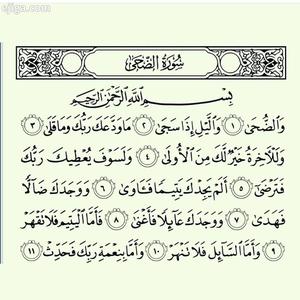 ejiga.com
سُورَةُ الضُّحَىٰ
بِسْمِ اللَّهِ الرَّحْمَٰنِ الرَّحِيمِ
وَالضُّحَىٰ ١ وَالَّيْلِ إِذَا سَجَىٰ ٢ مَا وَدَّعَكَ رَبُّكَ وَمَا قَلَىٰ ٣
وَلَلْآخِرَةُ خَيْرٌ لَّكَ مِنَ الْأُولَىٰ ٤ وَلَسَوْفَ يُعْطِيكَ رَبُّكَ
فَتَرْضَىٰ ٥ أَلَمْ يَجِدْكَ يَتِيمًا فَآوَىٰ ٦ وَوَجَدَكَ ضَآلًّا
فَهَدَىٰ ٧ وَوَجَدَكَ عَآئِلًا فَأَغْنَىٰ ٨ فَأَمَّا الْيَتِيمَ فَلَا تَقْهَرْ
٩ وَأَمَّا السَّآئِلَ فَلَا تَنْهَرْ ١٠ وَأَمَّا بِنِعْمَةِ رَبِّكَ فَحَدِّثْ ١١